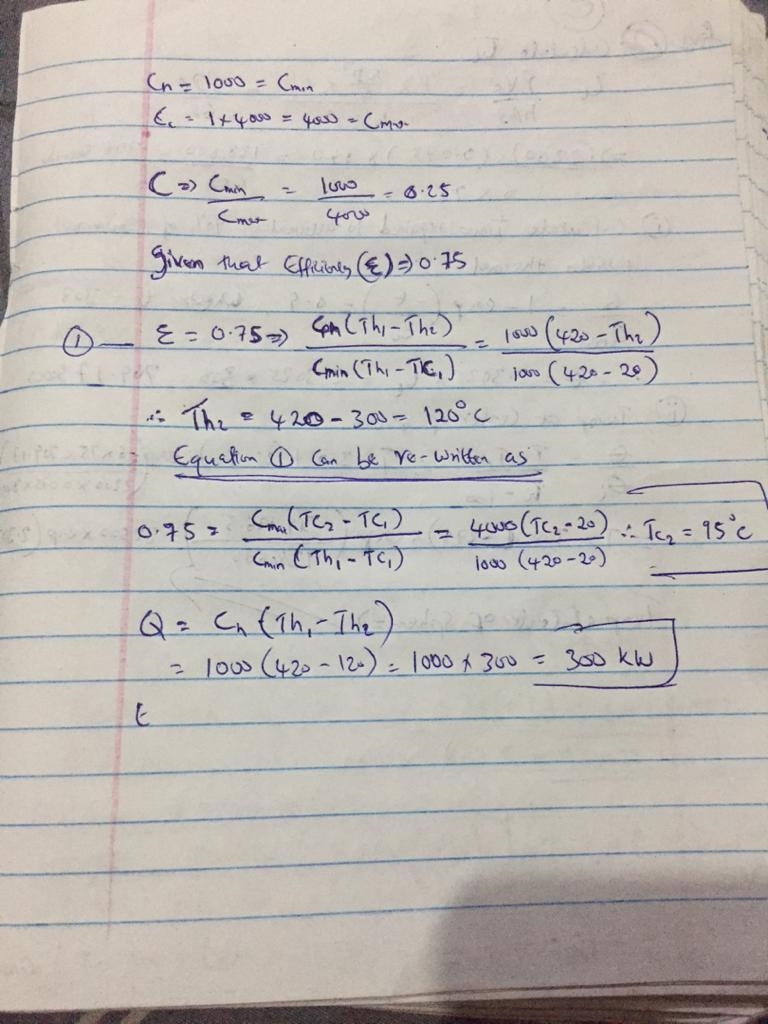 Ch = 1000 = Cmin
Cc = 1 x 4000 = 4000 = Cmax
C => Cmin / Cmax = 1000 / 4000 = 0.25
Given that Efficiency (ε) => 0.75
① — ε = 0.75 => Ch (Th1 - Th2) / Cmin (Th1 - Tc1) = 1000 (420 - Th2) / 1000 (420 - 20)
∴ Th2 = 420 - 300 = 120°C
Equation ① can be re-written as
0.75 = Cmax (Tc2 - Tc1) / Cmin (Th1 - Tc1) = 4000 (Tc2 - 20) / 1000 (420 - 20) ∴ Tc2 = 95°C
Q = Ch (Th1 - Th2)
= 1000 (420 - 120) = 1000 x 300 = 300 kW
t